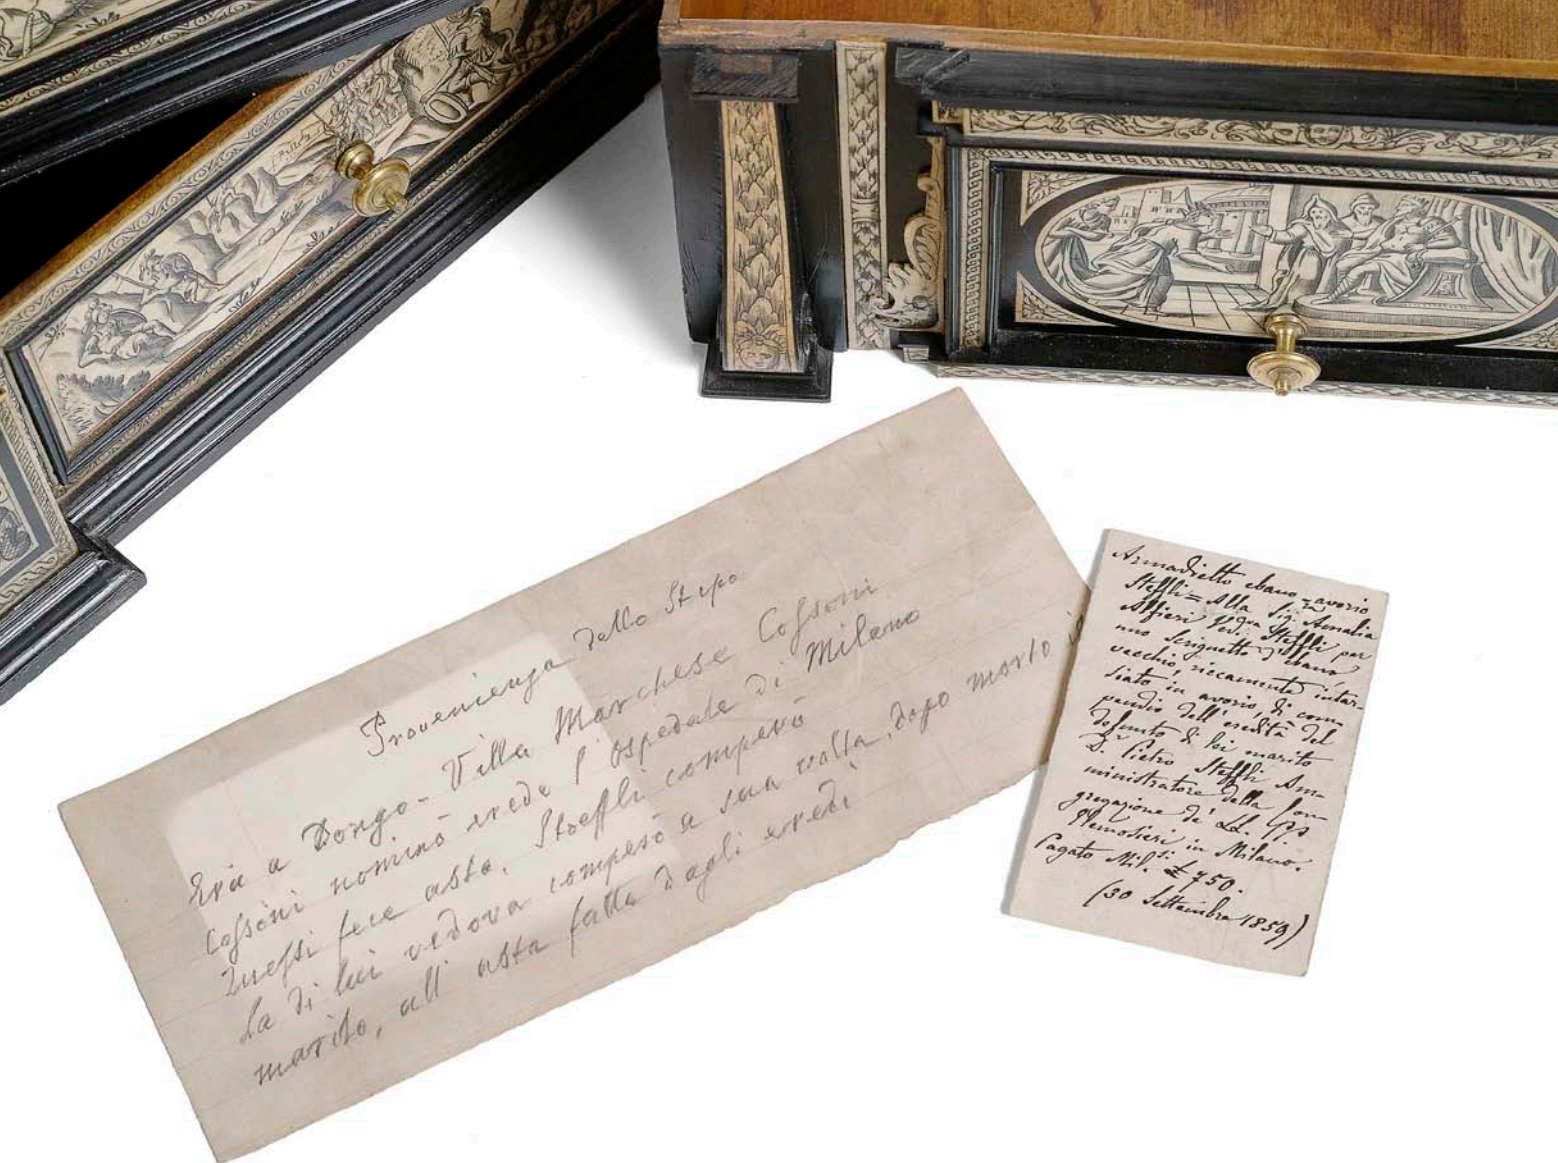 Provenienza dello Stipo
Era a Dongo - Villa Marchese Cossoni
Cossoni nominò erede l'ospedale di Milano
Questi fece asta. Steffli comperò
La di lui vedova comperò a sua volta, dopo morto il
marito, all'asta fatta dagli eredi
Armadietto ebano avorio
Steffli = Alla Sig. Amalia
Alfieri Ved. Steffli per
uno Scrignetto d'ebano
vecchio, riccamente intar-
siato in avorio, di com-
pendio dell'eredità del
defunto di lei marito
Dr Pietro Steffli Am-
ministratore della Con-
gregazione de' LL. PP.
Elemosieri in Milano.
Pagato Mil. £ 750.
(30 Settembre 1859)